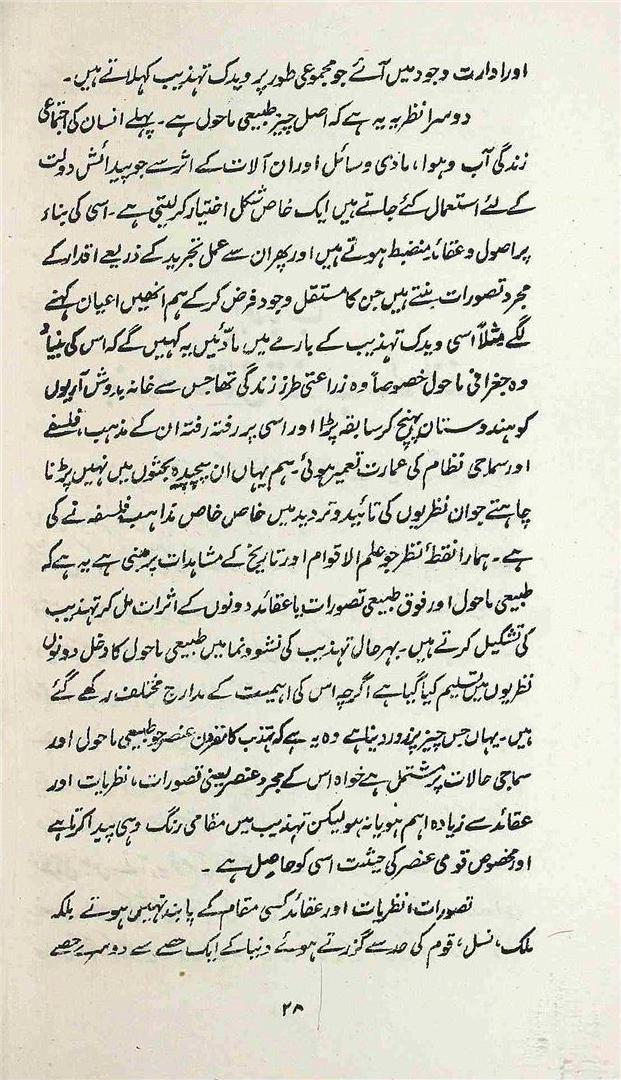 اور ادارت وجود میں آئے جو مجموعی طور پر ویدک تہذیب کہلاتے ہیں۔
دوسرا نظریہ یہ ہے کہ اصل چیز طبیعی ماحول ہے۔ پہلے انسان کی اجتماعی
زندگی آب و ہوا، مادی وسائل اور ان آلات کے اثر سے جو پیدائش دولت
کے لئے استعمال کئے جاتے ہیں ایک خاص شکل اختیار کر لیتی ہے۔ اسی کی بناء
پر اصول و عقائد منضبط ہوتے ہیں اور پھر ان سے عمل تجرید کے ذریعے اقدار کے
مجرد تصورات بنتے ہیں جن کا مستقل وجود فرض کر کے ہم انھیں اعیان کہنے
لگے مثلاً اسی ویدک تہذیب کے بارے میں مادّئیں یہ کہیں گے کہ اس کی بنیاد
وہ جغرافی ماحول خصوصاً وہ زراعتی طرز زندگی تھا جس سے خانہ بدوش آریوں
کو ہندوستان پہنچ کر سابقہ پڑا اور اسی پر رفتہ رفتہ ان کے مذہب، فلسفے
اور سماجی نظام کی عمارت تعمیر ہوئی۔ ہم یہاں ان پیچیدہ بحثوں میں نہیں پڑنا
چاہتے جو ان نظریوں کی تائید و تردید میں خاص خاص مذاہب فلسفہ نے کی
ہے۔ ہمارا نقطۂ نظر جو علم الاقوام اور تاریخ کے مشاہدات پر مبنی ہے یہ ہے کہ
طبیعی ماحول اور فوق طبیعی تصورات یا عقائد دونوں کے اثرات مل کر تہذیب
کی تشکیل کرتے ہیں۔ بہر حال تہذیب کی نشوونما میں طبیعی ماحول کا دخل دونوں
نظریوں میں تسلیم کیا گیا ہے اگرچہ اس کی اہمیت کے مدارج مختلف رکھے گئے
ہیں۔ یہاں جس چیز پر زور دینا ہے وہ یہ ہے کہ تہذیب کا عنصر جو طبیعی ماحول اور
سماجی حالات پر مشتمل ہے خواہ اس کے مجرد عنصر یعنی تصورات، نظریات اور
عقائد سے زیادہ اہم ہو یا نہ ہو لیکن تہذیب میں مقامی رنگ وہی پیدا کرتا ہے
اور مخصوص قومی عنصر کی حیثیت اسی کو حاصل ہے۔
تصورات، نظریات اور عقائد کسی مقام کے پابند نہیں ہوتے بلکہ
ملک، نسل، قوم کی حد سے گزرتے ہوئے دنیا کے ایک حصے سے دوسرے حصے
۲۸